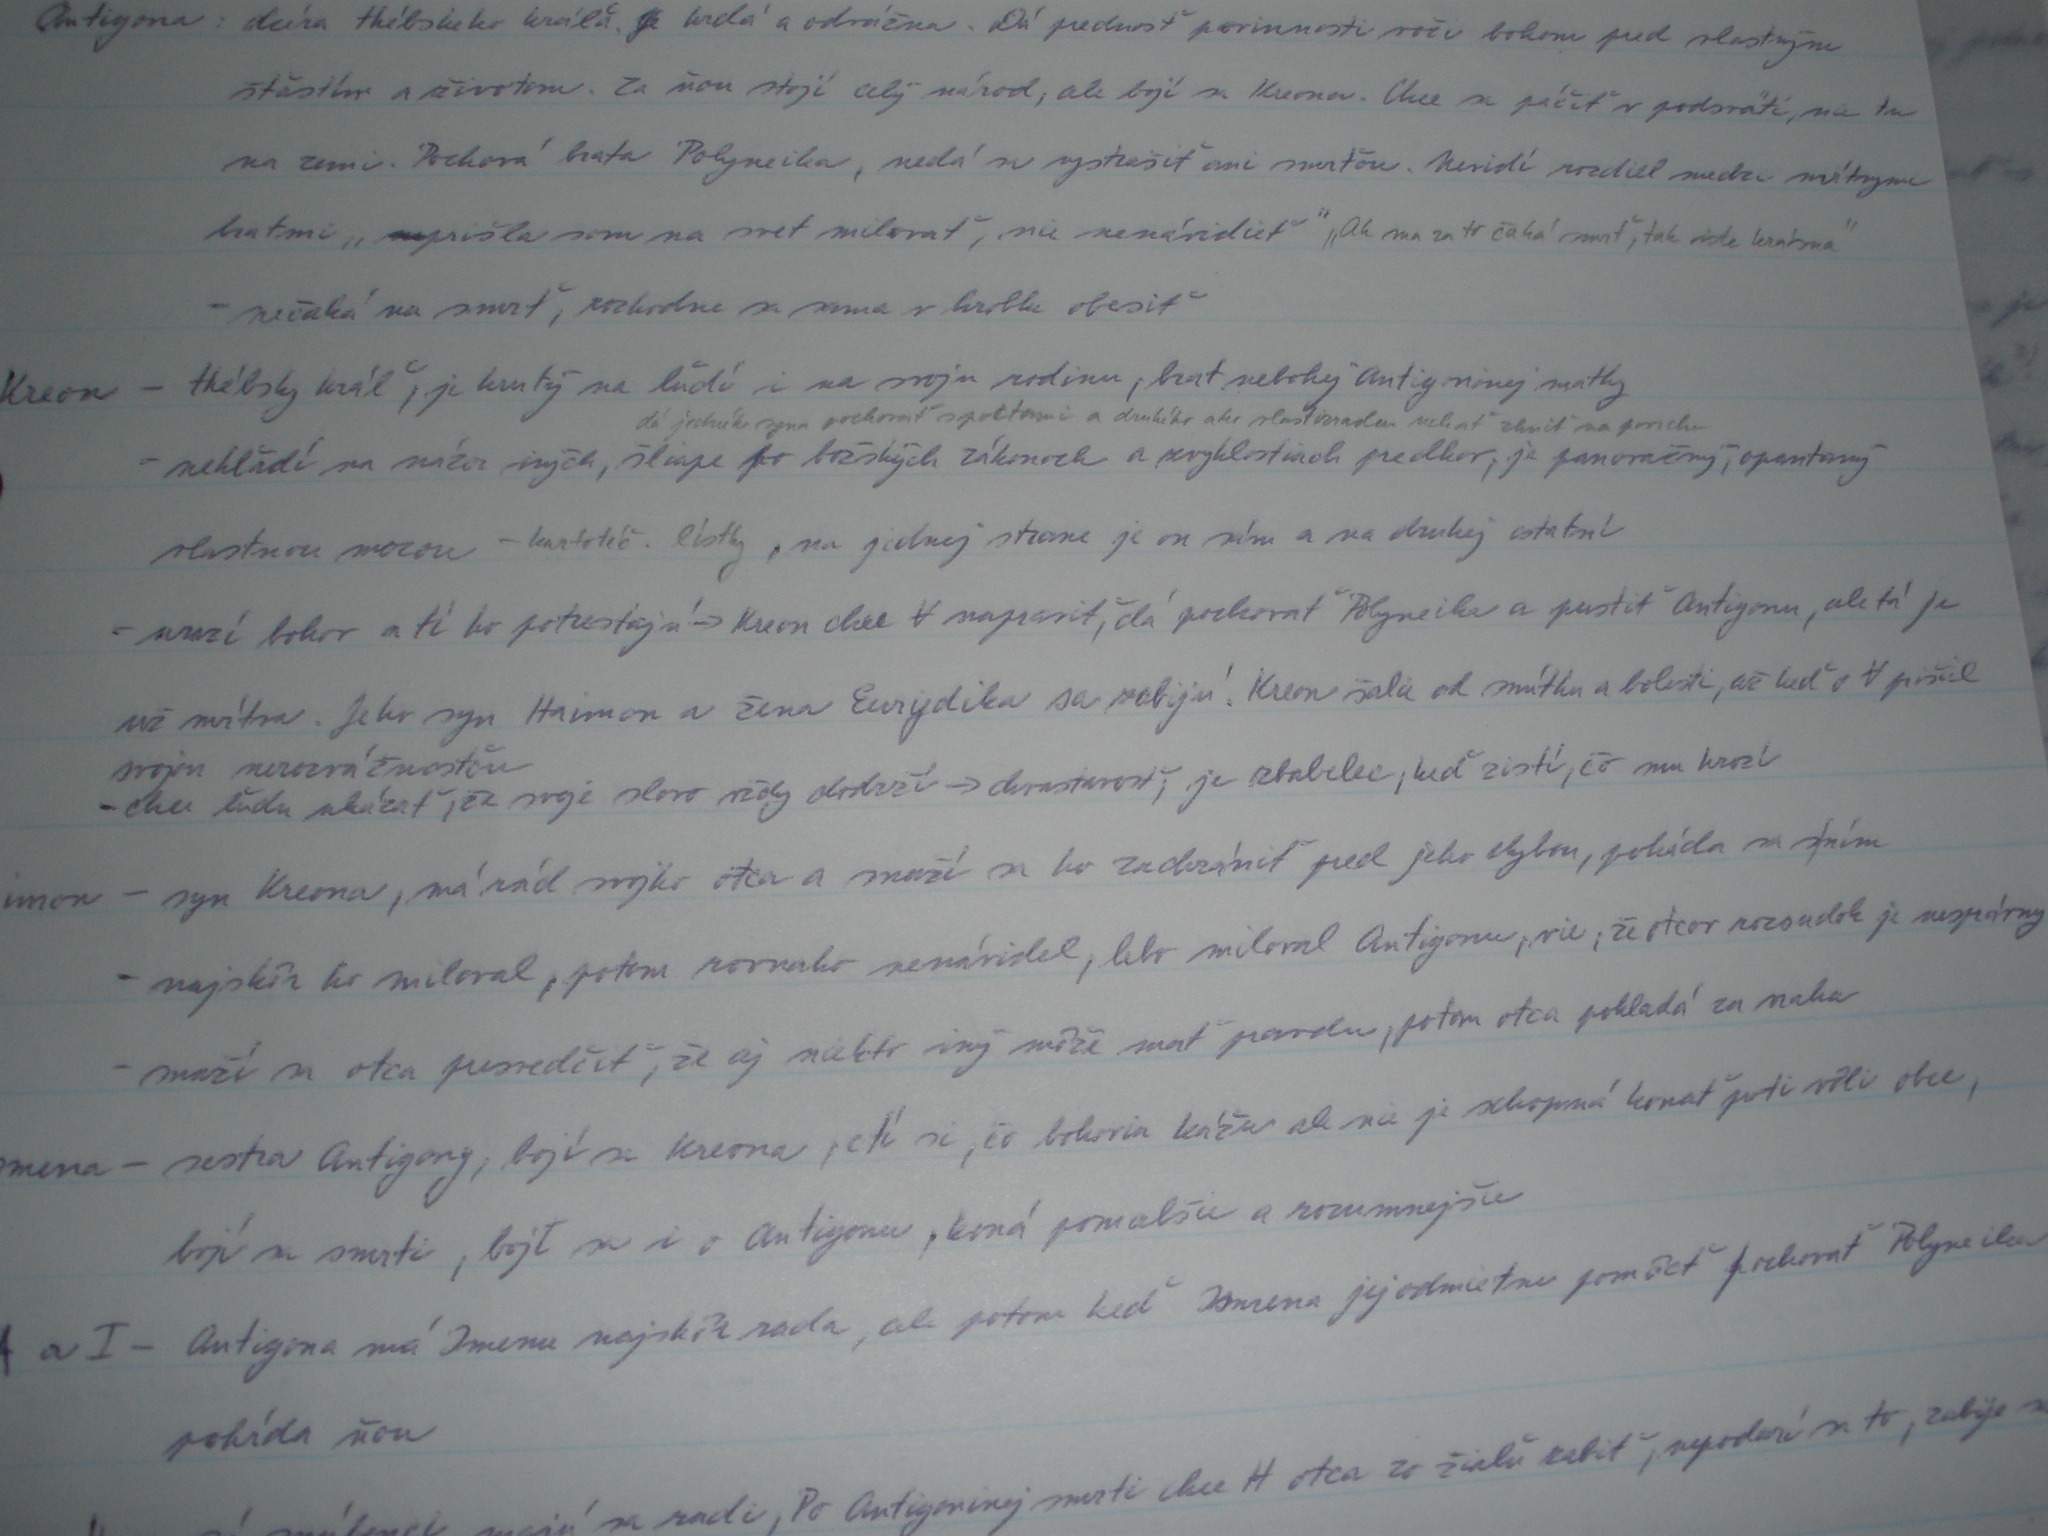 Antigona: dcéra thébskeho kráľa. Je hrdá a odvážna. Dá prednosť povinnosti voči bohom pred vlastným
šťastím a životom. Za ňou stojí celý národ, ale bojí sa Kreona. Chce sa páčiť v podsvätí, nie tu
na zemi. Pochová brata Polyneika, nedá sa vystrašiť ani smrťou. Nevidí rozdiel medzi mŕtvymi
bratmi „prišla som na svet milovať, nie nenávidieť" „Ak ma za to čaká smrť, tak iste krásna"
- nečaká na smrť, rozhodne sa sama v hrobke obesiť
Kreon - thébsky kráľ, je krutý na ľudí i na svoju rodinu, brat nebohej Antigoninej matky
dá jedného syna pochovať s poctami a druhého ako vlastizradcu nechať zhniť na povrchu
- nehľadí na názor iných, šliape po božských zákonoch a zvyklostiach predkov, je panovačný, opantaný
vlastnou mocou - kartoteč. lístky, na jednej strane je on sám a na druhej ostatní
- urazí bohov a tí ho potrestajú → Kreon chce ∀ napraviť, dá pochovať Polyneika a pustiť Antigonu, ale tá je
už mŕtva. Jeho syn Haimon a žena Eurydika sa zabijú. Kreon šalie od smútku a bolesti, až keď o ∀ prišiel
svojou nerozvážnosťou
- chce ľudu ukázať, že svoje slovo vždy dodrží → chvastavosť, je zbabelec, keď zistí, čo mu hrozí
imon - syn Kreona, má rád svojho otca a snaží sa ho zachrániť pred jeho chybou, poháda sa s ním
- najskôr ho miloval, potom rovnako nenávidel, lebo miloval Antigonu, vie, že otcov rozsudok je nesprávny
- snaží sa otca presvedčiť, že aj niekto iný môže mať pravdu, potom otca pokladá za vraha
smena - sestra Antigony, bojí sa Kreona, ctí si, čo bohovia kážu ale nie je schopná konať proti vôli obce,
bojí sa smrti, bojí sa i o Antigonu, koná pomalšie a rozumnejšie
A a I - Antigona má Ismenu najskôr rada, ale potom keď Ismena jej odmietne pomôcť pochovať Polyneika
poháda ňou
sú snúbenci, majú sa radi, Po Antigoninej smrti chce H otca zo žiaľu zabiť, nepodarí sa to, zabije sa